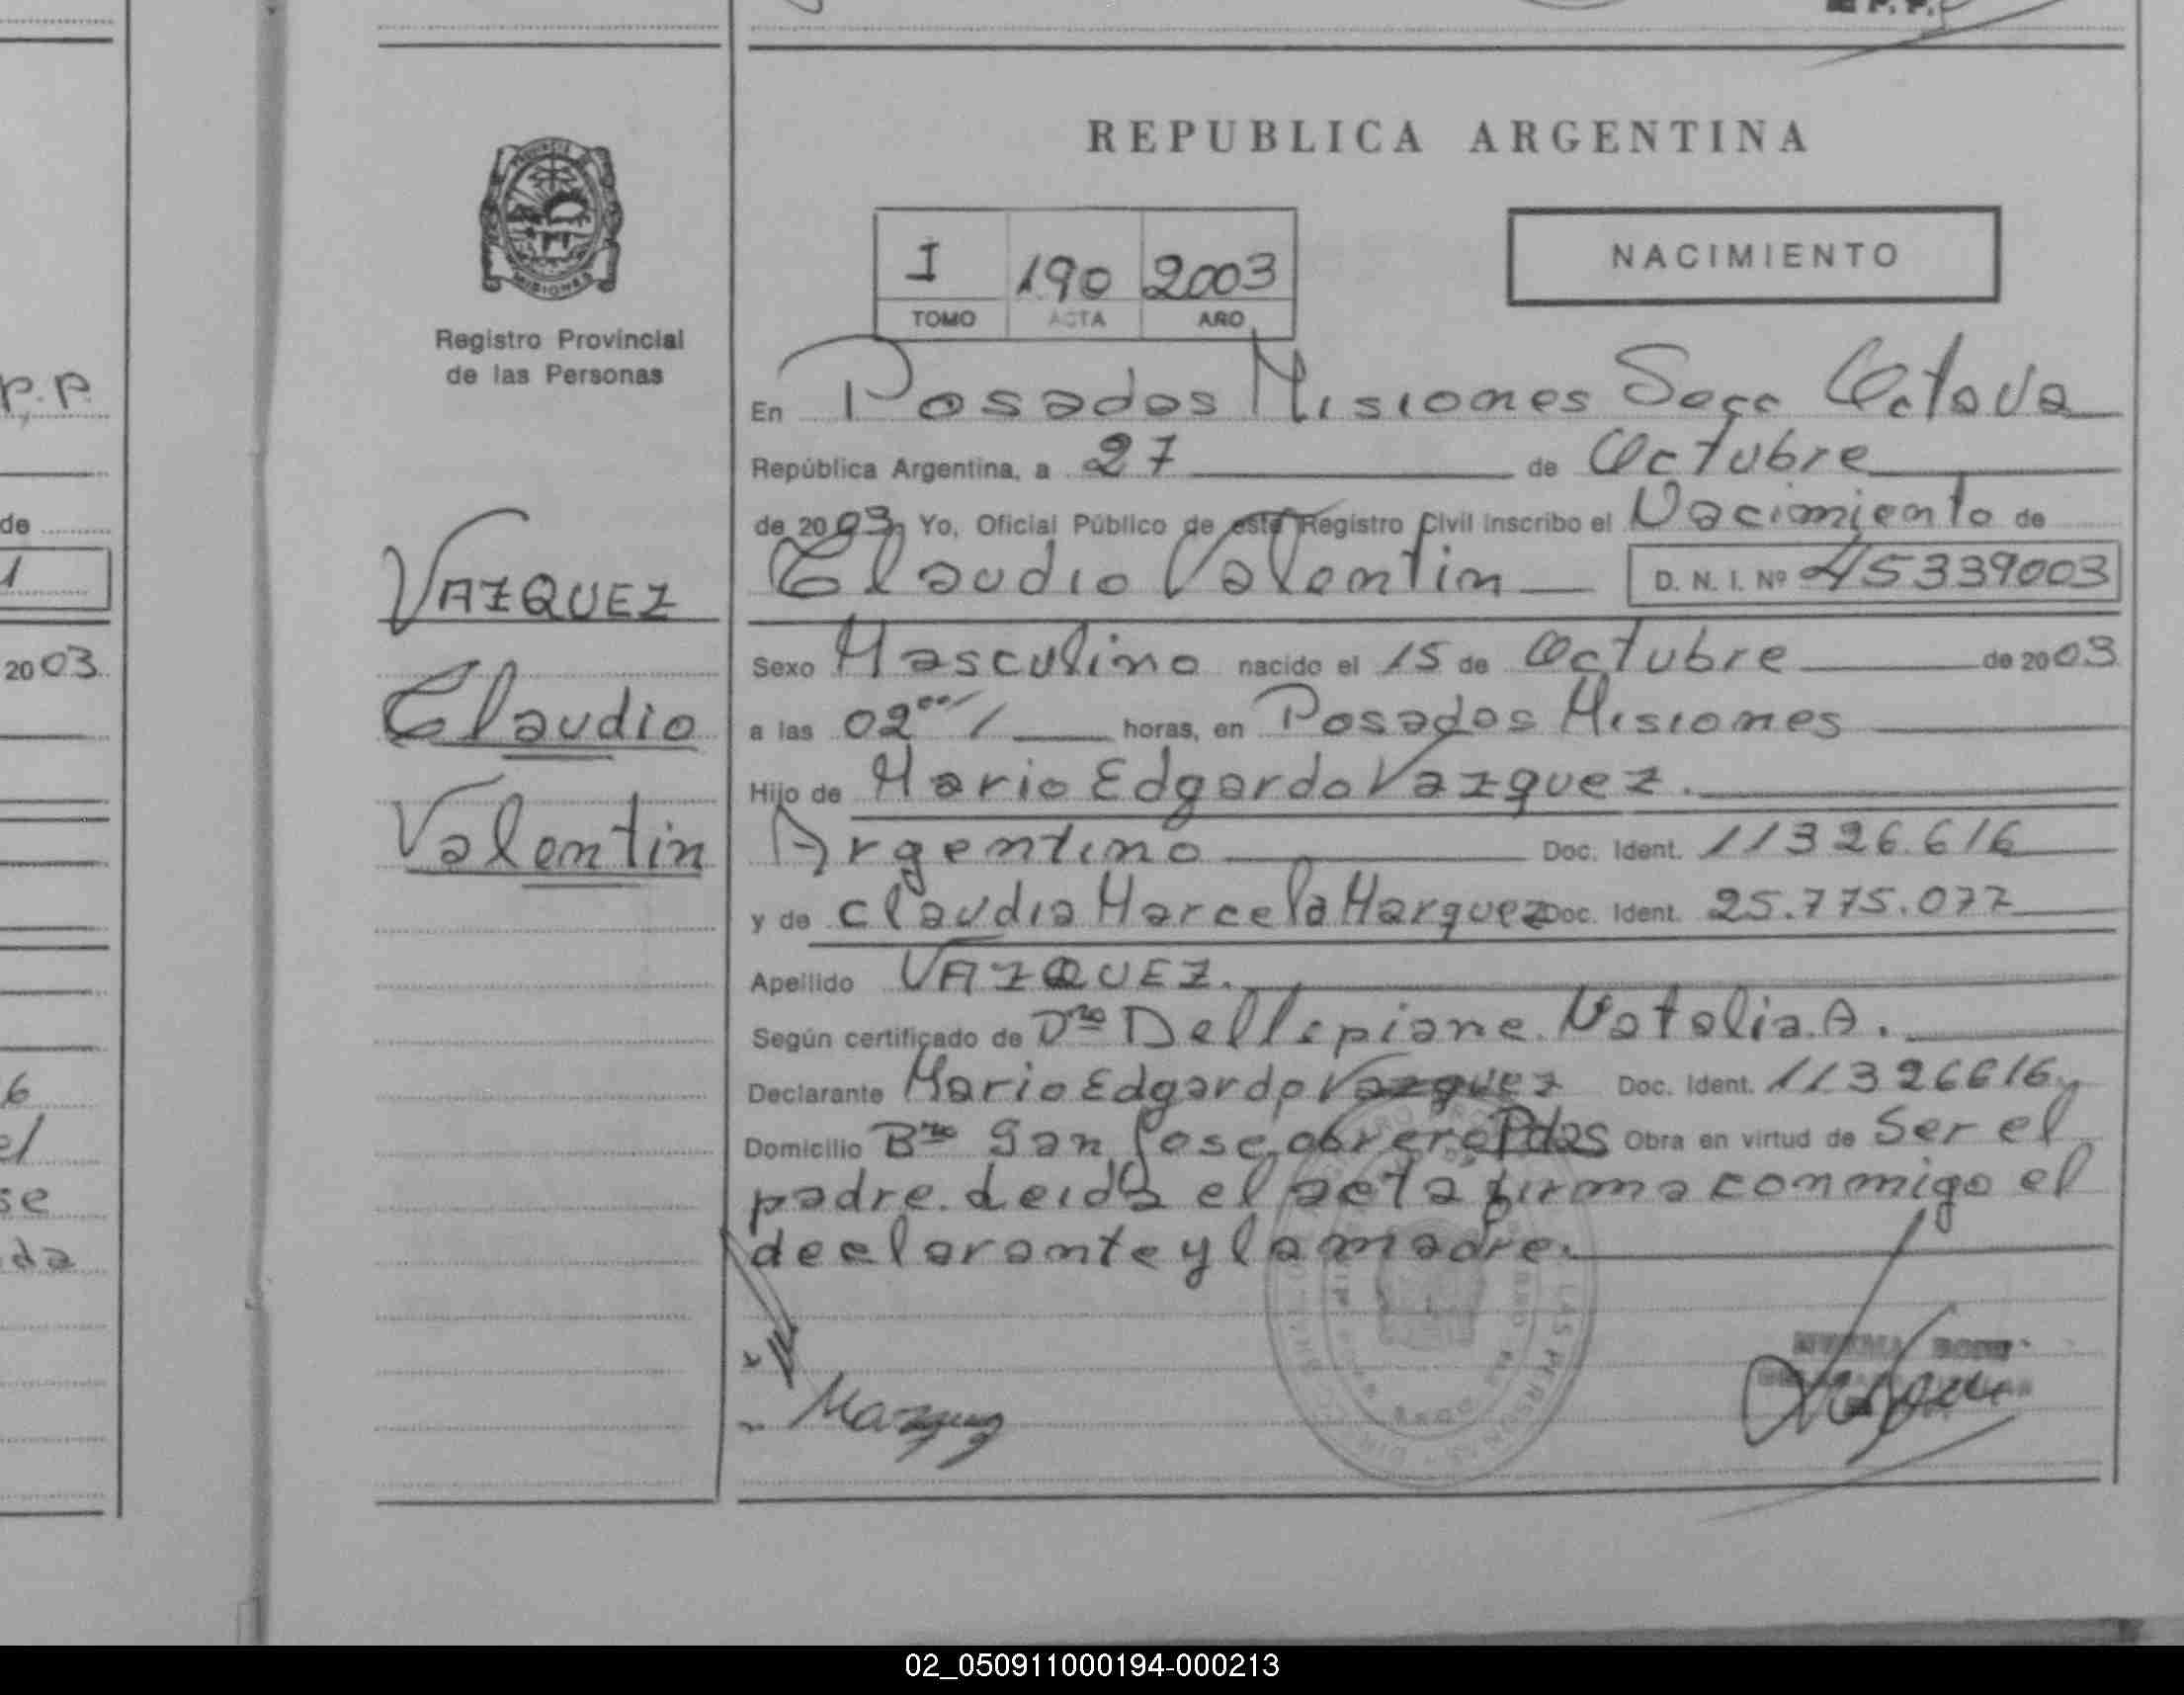 P. P.
REPUBLICA ARGENTINA
PROVINCIA DE
MISIONES
Registro Provincial
de las Personas
I 190 2003
TOMO ACTA AÑO
NACIMIENTO
VAZQUEZ
Claudio
Valentin
En Posadas Misiones Secc Octava
República Argentina, a 27 de Octubre
de 2003, Yo, Oficial Público de este Registro Civil inscribo el Nacimiento de
Claudio Valentin D. N. I. Nº 45339003
Sexo Masculino nacido el 15 de Octubre de 2003
a las 02 00 / horas, en Posadas Misiones
Hijo de Mario Edgardo Vazquez.
Argentino Doc. Ident. 11326.616
y de Claudia Marcela Marquez Doc. Ident. 25.775.077
Apellido VAZQUEZ.
Según certificado de Dra Dellepiane. Natalia. A.
Declarante Mario Edgardo Vazquez Doc. Ident. 11326616,
Domicilio Bro San Jose obrero Pdas Obra en virtud de Ser el
padre. Leida el acta firma conmigo el
declarante y la madre.
Marquez
p.p.
de
1
2003
6
el
se
da
02_050911000194-000213